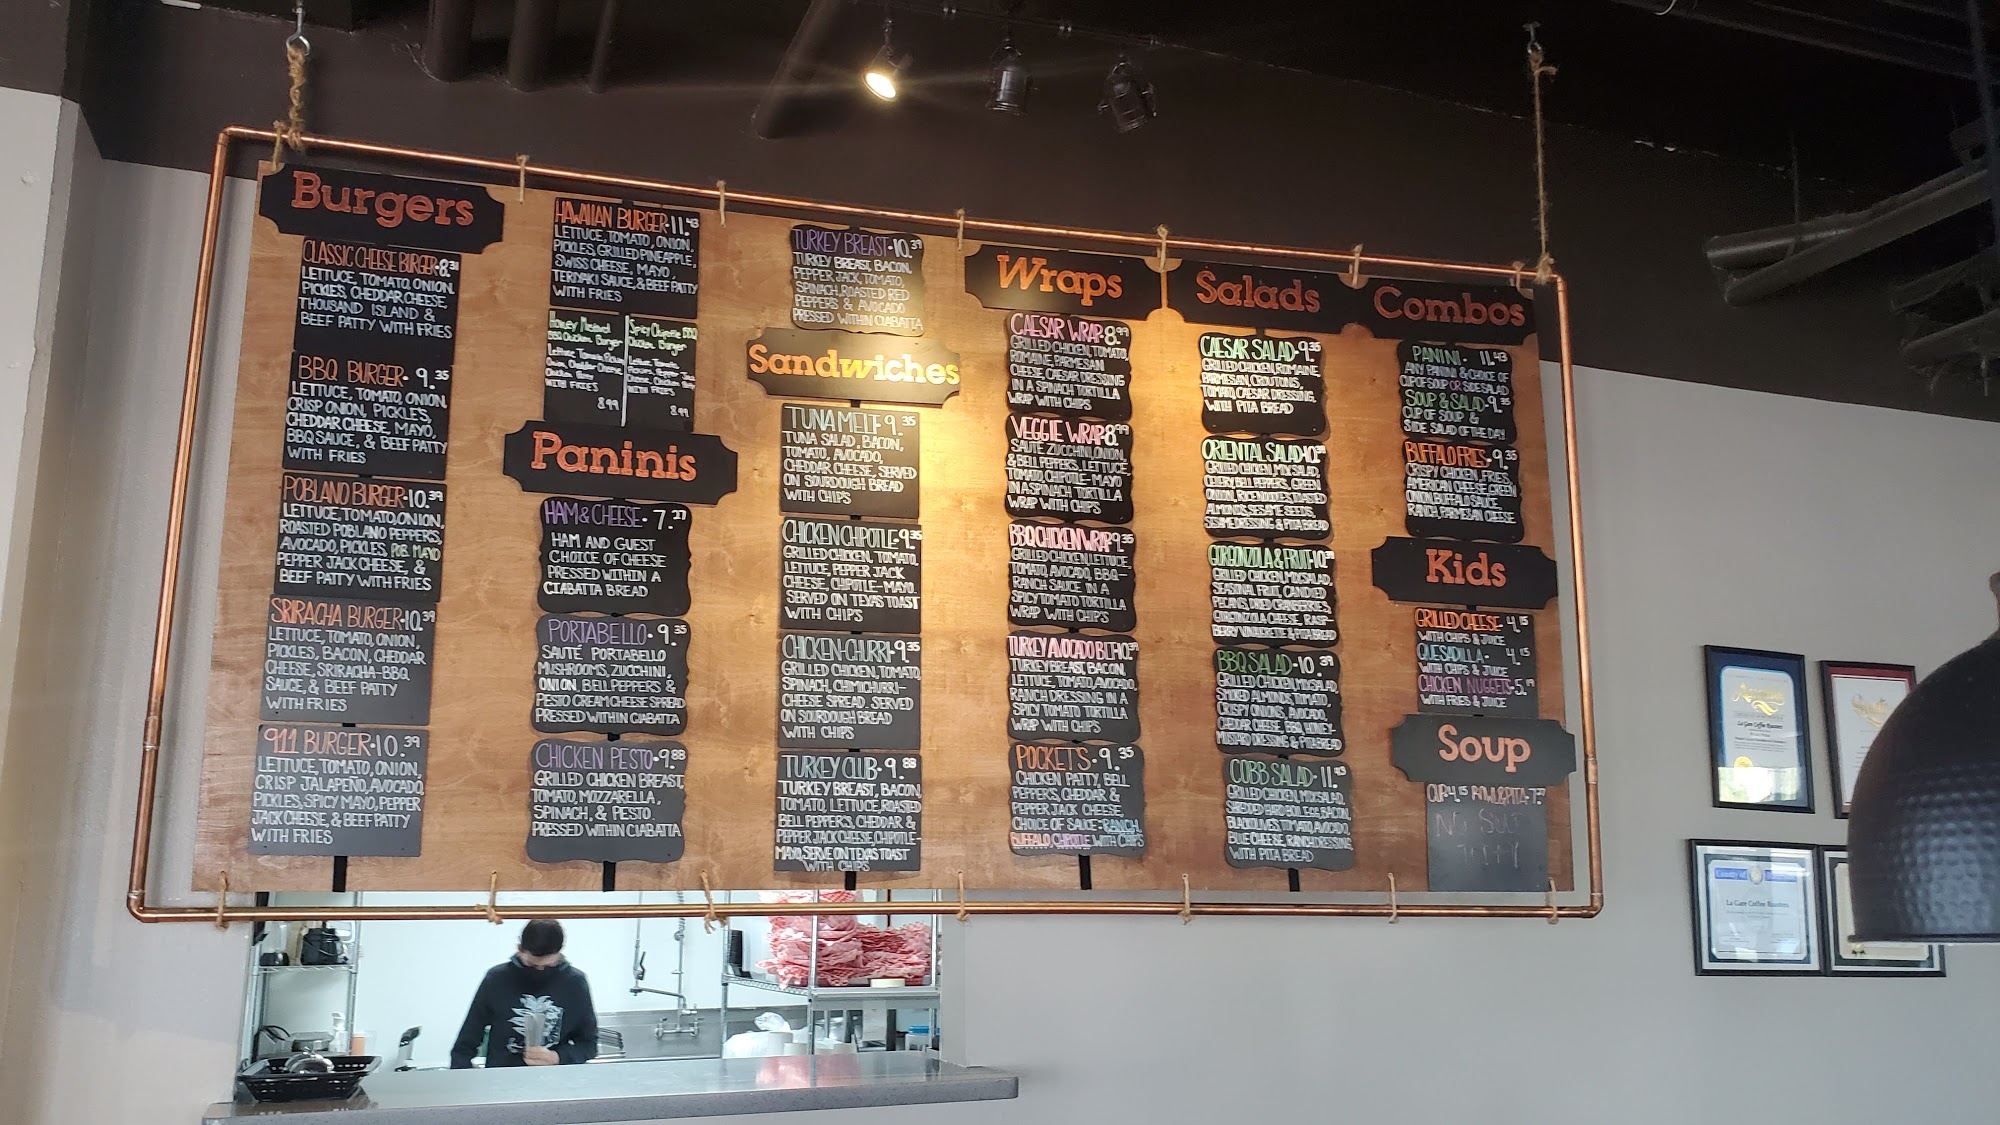 Burgers
CLASSIC CHEESE BURGER·8.31
LETTUCE, TOMATO, ONION,
PICKLES, CHEDDAR CHEESE,
THOUSAND ISLAND &
BEEF PATTY WITH FRIES
BBQ BURGER· 9.35
LETTUCE, TOMATO, ONION,
CRISP ONION, PICKLES,
CHEDDAR CHEESE, MAYO,
BBQ SAUCE, & BEEF PATTY
WITH FRIES
POBLANO BURGER·10.39
LETTUCE, TOMATO, ONION,
ROASTED POBLANO PEPPERS,
AVOCADO, PICKLES, POB. MAYO
PEPPER JACK CHEESE, &
BEEF PATTY WITH FRIES
SRIRACHA BURGER·10.39
LETTUCE, TOMATO, ONION,
PICKLES, BACON, CHEDDAR
CHEESE, SRIRACHA-BBQ
SAUCE, & BEEF PATTY
WITH FRIES
911 BURGER·10.39
LETTUCE, TOMATO, ONION,
CRISP JALAPENO, AVOCADO,
PICKLES, SPICY MAYO, PEPPER
JACK CHEESE, & BEEF PATTY
WITH FRIES
HAWAIIAN BURGER·11.43
LETTUCE, TOMATO, ONION,
PICKLES, GRILLED PINEAPPLE,
SWISS CHEESE, MAYO,
TERIYAKI SAUCE, & BEEF PATTY
WITH FRIES
Honey Mustard
BBQ Chicken Burger
Lettuce Tomato, Pickles
Onion, Cheddar Cheese
Chicken Patty
WITH FRIES
8.99
Spicy Chipotle BBQ
Chicken Burger
Lettuce, Tomato,
Pickles, Pepper Jack
Cheese, Chicken Patty
WITH FRIES
8.99
Paninis
HAM & CHEESE· 7.27
HAM AND GUEST
CHOICE OF CHEESE
PRESSED WITHIN A
CIABATTA BREAD
PORTABELLO· 9.35
SAUTÉ PORTABELLO
MUSHROOMS, ZUCCHINI,
ONION, BELL PEPPERS &
PESTO CREAM CHEESE SPREAD
PRESSED WITHIN CIABATTA
CHICKEN PESTO·9.88
GRILLED CHICKEN BREAST,
TOMATO, MOZZARELLA,
SPINACH, & PESTO.
PRESSED WITHIN CIABATTA
TURKEY BREAST·10.39
TURKEY BREAST, BACON,
PEPPER JACK, TOMATO,
SPINACH, ROASTED RED
PEPPERS & AVOCADO
PRESSED WITHIN CIABATTA
Sandwiches
TUNA MELT· 9.35
TUNA SALAD, BACON,
TOMATO, AVOCADO,
CHEDDAR CHEESE, SERVED
ON SOURDOUGH BREAD
WITH CHIPS
CHICKEN CHIPOTLE·9.35
GRILLED CHICKEN, TOMATO,
LETTUCE, PEPPER JACK
CHEESE, CHIPOTLE-MAYO.
SERVED ON TEXAS TOAST
WITH CHIPS
CHICKEN-CHURRI·9.35
GRILLED CHICKEN, TOMATO,
SPINACH, CHIMICHURRI-
CHEESE SPREAD, SERVED
ON SOURDOUGH BREAD
WITH CHIPS
TURKEY CLUB· 9.88
TURKEY BREAST, BACON,
TOMATO, LETTUCE, ROASTED
BELL PEPPERS, CHEDDAR &
PEPPER JACK CHEESE, CHIPOTLE-
MAYO, SERVE ON TEXAS TOAST
WITH CHIPS
Wraps
CAESAR WRAP·8.99
GRILLED CHICKEN, TOMATO,
ROMAINE, PARMESAN
CHEESE CAESAR DRESSING
IN A SPINACH TORTILLA
WRAP WITH CHIPS
VEGGIE WRAP·8.99
SAUTE ZUCCHINI, ONION,
& BELL PEPPERS, LETTUCE,
TOMATO, CHIPOTLE-MAYO
IN A SPINACH TORTILLA
WRAP WITH CHIPS
BBQ CHICKEN WRAP·9.35
GRILLED CHICKEN, LETTUCE,
TOMATO, AVOCADO, BBQ-
RANCH SAUCE IN A
SPICY TOMATO TORTILLA
WRAP WITH CHIPS
TURKEY AVOCADO BLT·10.39
TURKEY BREAST, BACON,
LETTUCE, TOMATO, AVOCADO,
RANCH DRESSING IN A
SPICY TOMATO TORTILLA
WRAP WITH CHIPS
POCKETS· 9.35
CHICKEN PATTY, BELL
PEPPERS, CHEDDAR &
PEPPER JACK CHEESE.
CHOICE OF SAUCE: RANCH,
BUFFALO, CHIPOTLE WITH CHIPS
Salads
CAESAR SALAD·9.35
GRILLED CHICKEN, ROMAINE,
PARMESAN, CROUTONS,
TOMATO, CAESAR DRESSING,
WITH PITA BREAD
ORIENTAL SALAD·10.39
GRILLED CHICKEN, MIX SALAD,
CELERY, BELL PEPPERS, GREEN
ONION, RICE NOODLES, TOASTED
ALMONDS, SESAME SEEDS,
SESAME DRESSING & PITA BREAD
GORGONZOLA & FRUIT·10.39
GRILLED CHICKEN, MIX SALAD,
SEASONAL FRUIT, CANDIED
PECANS, DRIED CRANBERRIES,
GORGONZOLA CHEESE, RASP-
BERRY VINAIGRETTE & PITA BREAD
BBQ SALAD·10.39
GRILLED CHICKEN, MIX SALAD,
SMOKED ALMONDS, TOMATO,
CRISPY ONIONS, AVOCADO,
CHEDDAR CHEESE, BBQ, HONEY-
MUSTARD DRESSING & PITA BREAD
COBB SALAD·11.43
GRILLED CHICKEN, MIX SALAD,
SHREDDED HARD BOIL EGG, BACON,
BLACK OLIVES, TOMATO, AVOCADO,
BLUE CHEESE, RANCH DRESSING
WITH PITA BREAD
Combos
PANINI· 11.43
ANY PANINI & CHOICE OF
CUP OF SOUP OR SIDE SALAD
SOUP & SALAD·9.35
CUP OF SOUP &
SIDE SALAD OF THE DAY
BUFFALO FRIES·9.35
CRISPY CHICKEN, FRIES,
AMERICAN CHEESE, GREEN
ONION, BUFFALO SAUCE,
RANCH, PARMESAN CHEESE
Kids
GRILLED CHEESE· 4.15
WITH CHIPS & JUICE
QUESADILLA· 4.15
WITH CHIPS & JUICE
CHICKEN NUGGETS·5.19
WITH FRIES & JUICE
Soup
CUP·4.15 BOWL & PITA·7.27
NO SOUP
County of
La Gare Coffee Roasters
La Gare Coffee Roasters